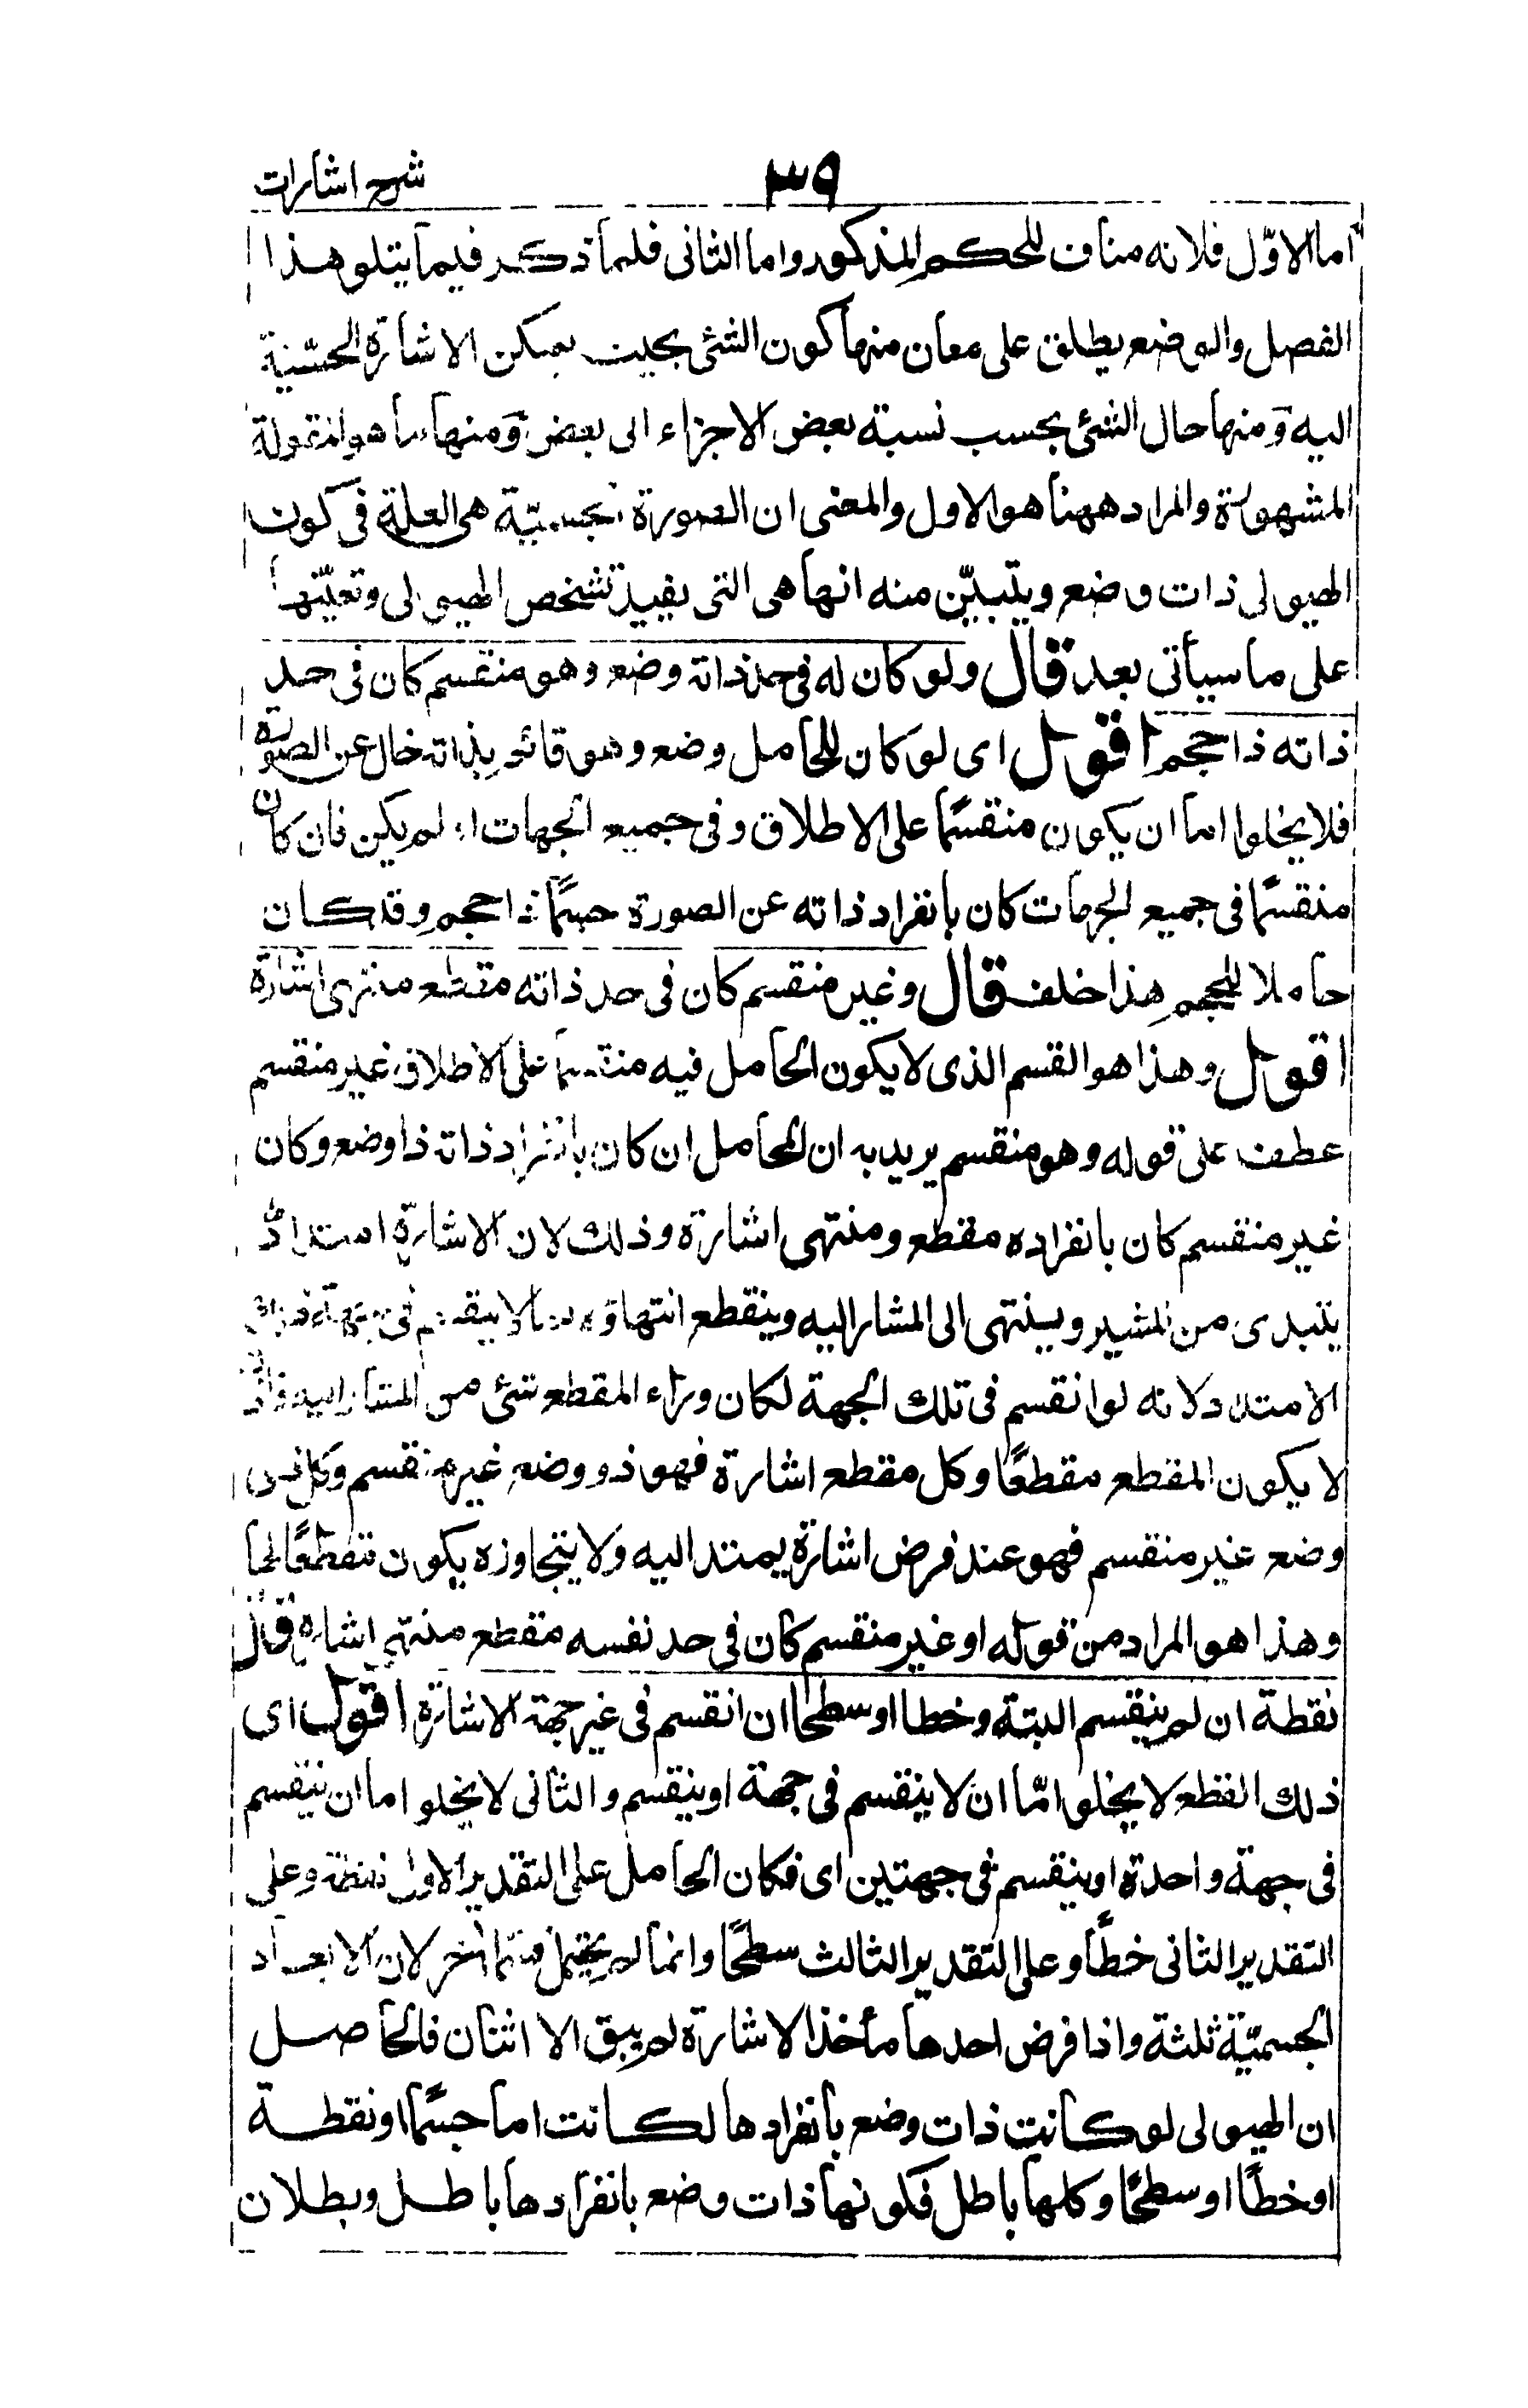 شرح اشارات
٣٩
اما الاوّل فلانه مناف للحكم المذكور واما الثانى فلما تذكر فيما يتلو هذا
الفصل والوضع يطلق على معان منها كون الشئ بحيث يمكن الاشارة الحسّية
اليه ومنها حال الشئ بحسب نسبة بعض الاجزاء الى بعض ومنها ما هو المقولة
المشهورة والمراد ههنا هو الاول والمعنى ان الصورة الجسميّة هى العلة فى كون
الهيولى ذات وضع ويتبيّن منه انها هى التى يفيد تشخص الهيولى وتعيّنها
على ما سيأتى بعد قال ولو كان له فى حد ذاته وضع وهو منقسم كان فى حد
ذاته ذا حجم اقول اى لو كان للحامل وضع وهو قائم بذاته خال عن الصورة
فلا يخلوا اما ان يكون منقسمًا على الاطلاق وفى جميع الجهات او لم يكن فان كان
منقسمًا فى جميع الجهات كان بانفراد ذاته عن الصورة جسمًا ذا حجم وقد كان
حاملا للحجم هذا خلف قال وغير منقسم كان فى حد ذاته مقطع منتهى اشارة
اقول وهذا هو القسم الذى لا يكون الحامل فيه منقسما على الاطلاق غير منقسم
عطف على قوله وهو منقسم يريد به ان الحامل ان كان بانفراد ذاته ذا وضع وكان
غير منقسم كان بانفراده مقطع ومنتهى اشارة وذلك لان الاشارة امتداد
يتبدى من المشير وينتهى الى المشار اليه وينقطع انتهاؤه بما لا ينقسم فى جهة ذلك
الامتداد لانه لو انقسم فى تلك الجهة لكان وراء المقطع شئ من المشار اليه
لا يكون المقطع مقطعًا وكل مقطع اشارة فهو ذو وضع غير منقسم وكل ذى
وضع غير منقسم فهو عند فرض اشارة يمتد اليه ولا يتجاوزه يكون مقطعًا لها
وهذا هو المراد من قوله او غير منقسم كان فى حد نفسه مقطع منتهى اشارة قال
نقطة ان لم ينقسم البتة وخطا او سطحا ان انقسم فى غير جهة الاشارة اقول اى
ذلك المقطع لا يخلوا امّا ان لا ينقسم فى جهة او ينقسم والثانى لا يخلو اما ان ينقسم
فى جهة واحدة او ينقسم فى جهتين اى فكان الحامل على التقدير الاول نقطة وعلى
التقدير الثانى خطًا وعلى التقدير الثالث سطحًا وانما لم يحتمل قسما آخر لان الابعاد
الجسميّة ثلثة واذا فرض احدها مأخذ الاشارة لم يبق الا اثنان فالحاصل
ان الهيولى لو كانت ذات وضع بانفرادها لكانت اما جسمًا او نقطة
او خطًا او سطحًا وكلها باطل فكونها ذات وضع بانفرادها باطل وبطلان